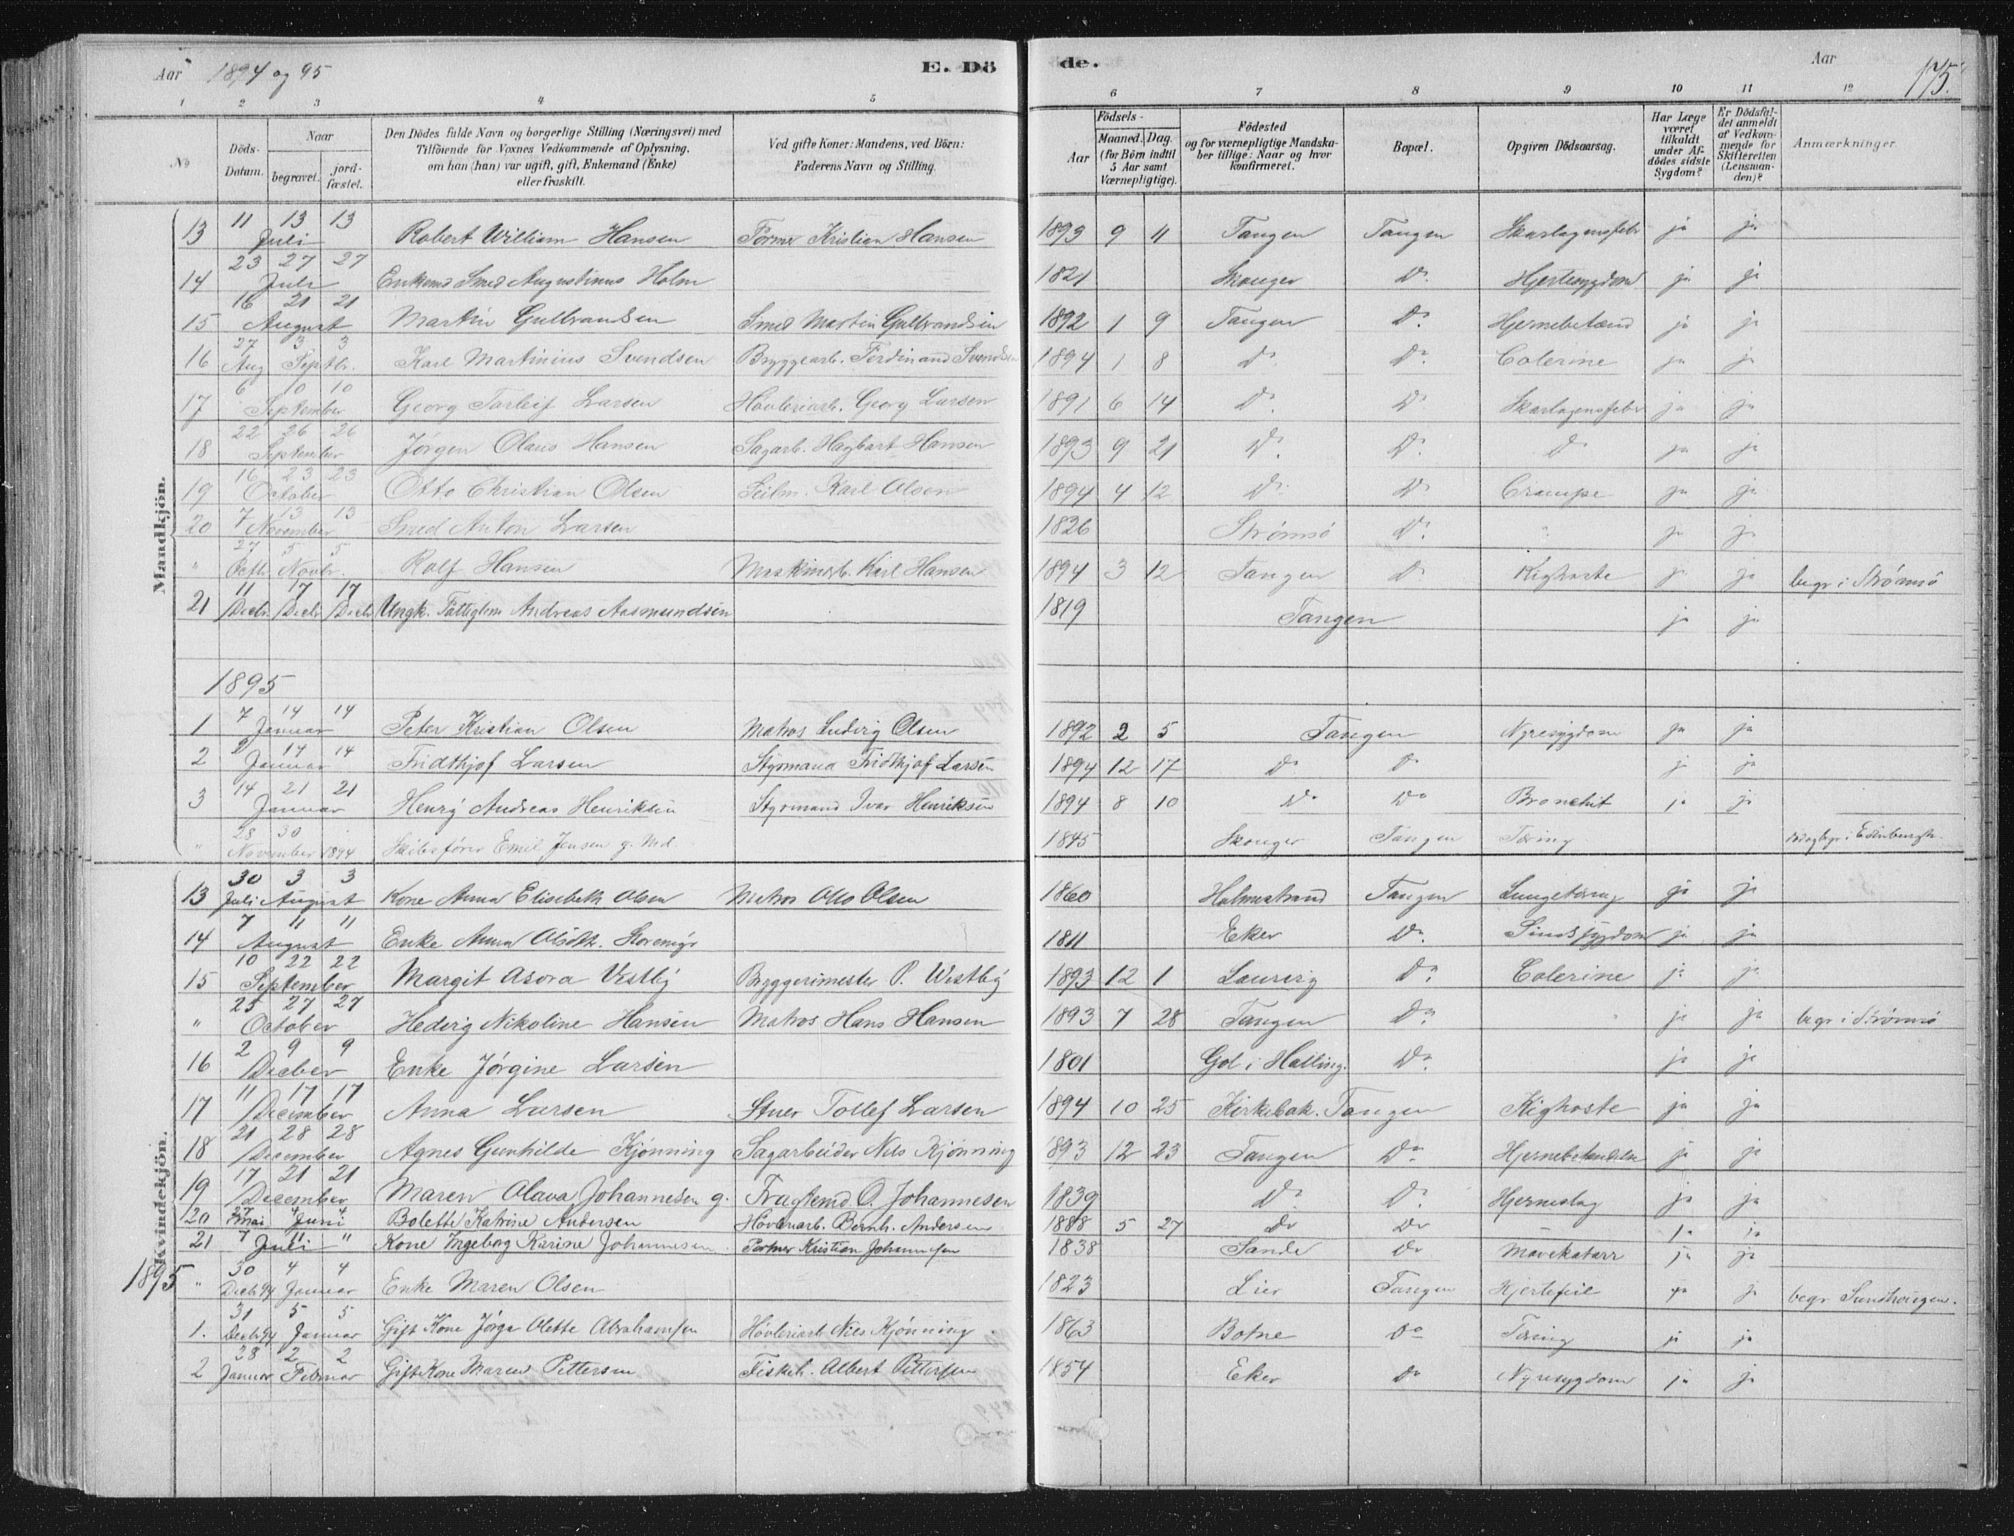 Aar 1894 og 95 E. Dö de. Aar 175.
1 2 3 4 5 6 7 8 9 10 11 12
No Döds-Datum. Naar begravet. jord-fæstet. Den Dödes fulde Navn og borgerlige Stilling (Næringsvei) med Tilföiende for Voxnes Vedkommende af Oplysning, om han (hun) var ugift, gift, Enkemand (Enke) eller fraskilt. Ved gifte Koner: Mandens, ved Börn: Faderens Navn og Stilling. Födsels- Aar Maaned. Dag. (for Börn indtil 5 Aar samt Værnepligtige). Födested og for værnepligtige Mandska-ber tillige: Naar og hvor konfirmeret. Bopæl. Opgiven Dödsaarsag. Har Læge været tilkaldt under Af-dödes sidste Sygdom? Er Dödsfal-det anmeldt af Vedkom-mende for Skifteretten (Lensman-den)? Anmærkninger.
Mandkjön.
13 11 13 13 Juli Robert William Hansen Former Kristian Hansen 1893 9 11 Tangen Tangen Skarlagensfebr ja ja
14 23 27 27 Juli Enkemd Smed Augustinus Holm 1821 Skouger Do Hjertesygdom ja ja
15 16 21 21 August Martin Gulbrandsen Smed Martin Gulbrandsen 1892 1 9 Tangen Do Hjernebetænd ja ja
16 27 3 3 Aug Septbr. Karl Martinius Svendsen Bryggearb. Ferdinand Svendsen 1894 1 8 Do Do Colerine ja ja
17 6 10 10 September Georg Torleif Larsen Høvleriarb. Georg Larsen 1891 6 14 Do Do Skarlagensfebr ja ja
18 22 26 26 September Jørgen Olaus Hansen Sagarb. Hagbart Hansen 1893 9 21 Do Do Do ja ja
19 16 23 23 October Otto Christian Olsen Seilm. Karl Olsen 1894 4 12 Do Do Crampe ja ja
20 7 13 13 November Smed Anton Larsen 1826 Strømsø Do " ja ja
" 27 5 5 Octb. Novbr. Rolf Hansen Maskinarb. Karl Hansen 1894 3 12 Tangen Do Kighoste ja ja begr i Strømsø
21 11 17 17 Decbr. Decbr. Decbr Ungk. Fattiglem Andreas Aasmundsen 1819 Tangen ja ja
1895
1 7 14 14 Januar Peter Kristian Olsen Matros Ludvig Olsen 1892 2 5 Tangen Nyresygdom ja ja
2 14 14 Januar Fridthjof Larsen Styrmand Fridthjof Larsen 1894 12 17 Do Do ja ja
3 14 21 21 Januar Henry Andreas Henriksen Styrmand Ivar Henriksen 1894 8 10 Do Do Bronchit ja ja
" 28 30 November 1894 Skibsfører Emil Jensen g. Md. 1845 Skouger Tangen Tæring
Kvindekjön.
13 30 3 3 Juli August Kone Anna Elisebeth Olsen Matros Otto Olsen 1860 Holmestrand Tangen Lungetæring ja ja
14 7 11 11 August Enke Anna 1811 Eker Do Sindssygdom ja ja
15 10 22 22 September Margit Asora Vestby Bryggerimester P. Westby 1893 12 1 Laurvig Do Colerine ja ja
" 25 27 27 October Hedvig Nikoline Hansen Matros Hans Hansen 1893 7 28 Tangen Do " ja ja begr i Strømsø
16 2 9 9 Decber Enke Jørgine Larsen 1801 Gol i Halling. Do ja ja
17 11 17 17 December Anna Larsen Stuer Tollef Larsen 1894 10 25 Kirkebak. Tangen Kighoste ja ja
18 21 28 28 December Agnes Gunhilde Kjønning Sagarbeider Nils Kjønning 1893 12 23 Tangen Do Hjernebetændelse ja ja
19 17 21 21 December Maren Olava Johannesen g. Fragtemd O. Johannesen 1839 Do Do Hjerneslag ja ja
20 27 4 4 Mai Juni Bolette Katrine Andersen Høvleriarb. Bernh. Andersen 1888 5 27 Do Do — ja ja
21 7 11 " Juli Kone Ingeborg Karine Johannesen Former Kristian Johannesen 1838 Sande Do Mavekatarr ja ja
1895 " 30 4 4 Decb 94 Januar Enke Maren Olsen 1823 Lier Tangen Hjertefeil ja ja begr.
1. 31 5 5 Decb 94 Januar Gift Kone Jørga Olette Abrahamsen Høvleriarb Nils Kjønning 1863 Botne Do Tæring ja ja
2 28 2 2 Januar Februar Gift Kone Maren Pettersen Fiskeh. Albert Pettersen 1854 Eker Do Nyresygdom ja ja